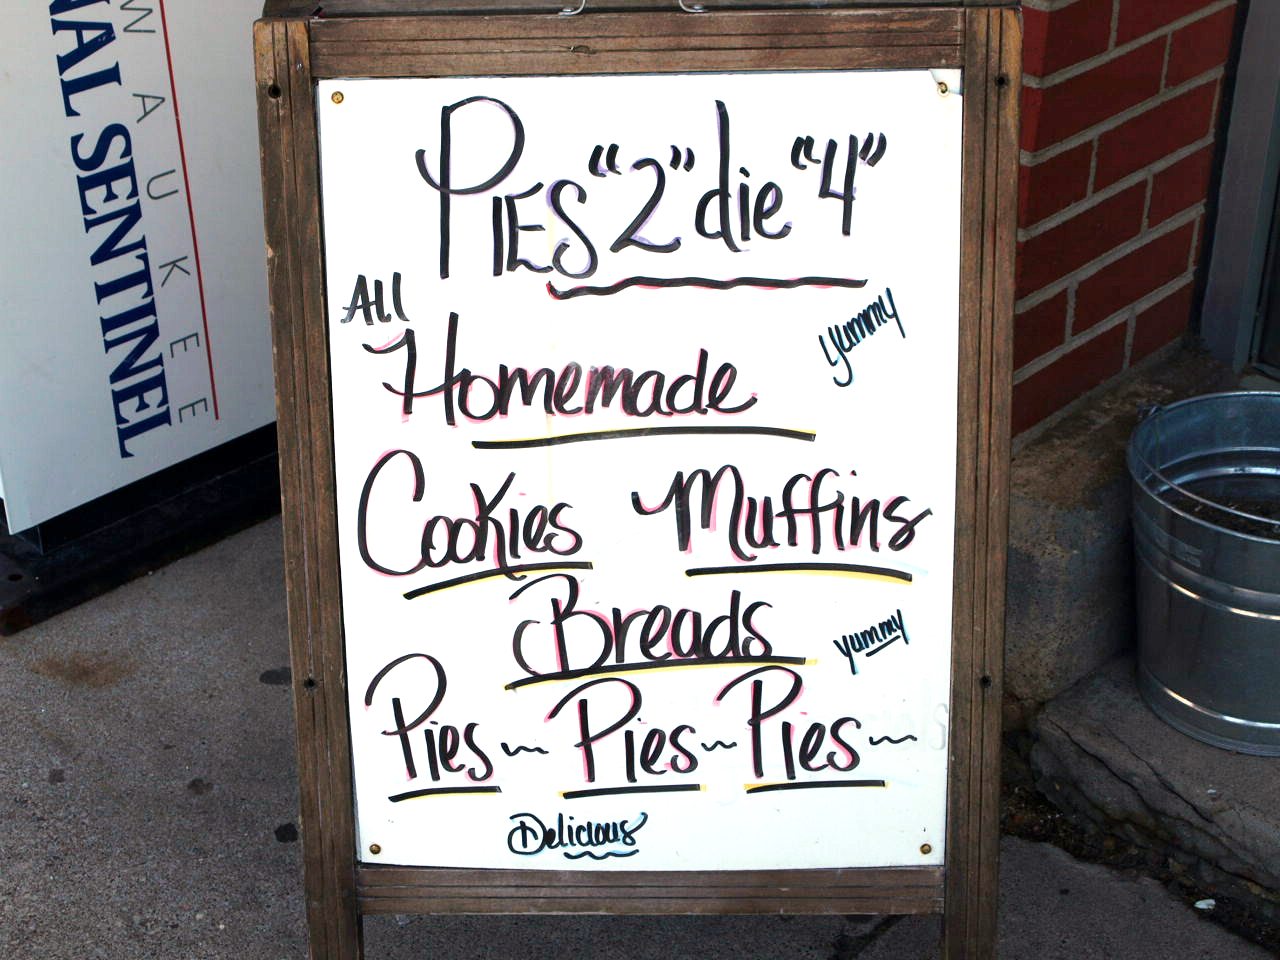 PIES "2" die "4"
All
Homemade
yummy
Cookies Muffins
Breads
yummy
Pies ~ Pies ~ Pies ~
Delicious
WAUKEE
NAL SENTINEL